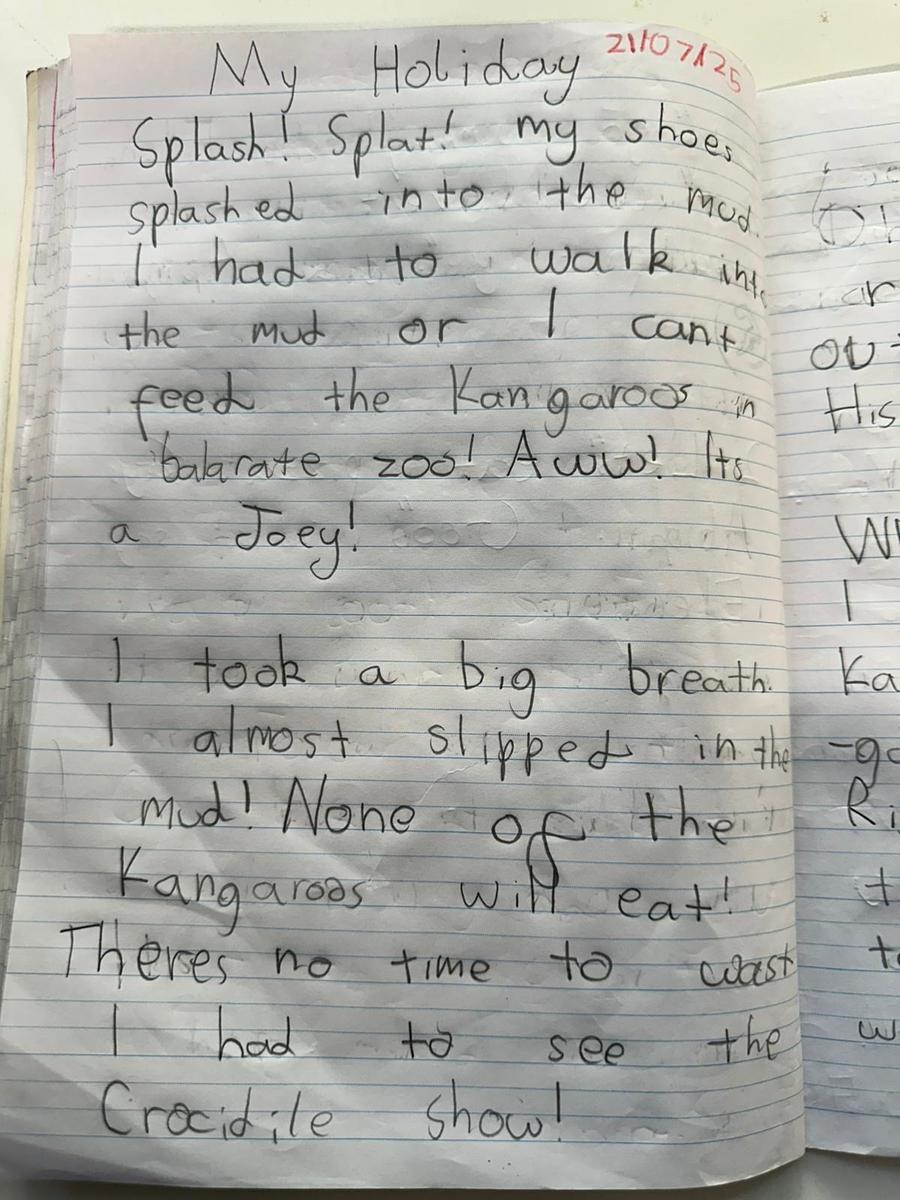 My Holiday 21/07/25
Splash! Splat! my shoes
splashed into the mud.
I had to walk into
the mud or I cant
feed the Kangaroos in
balarate zoo! Aww! Its
a Joey!
I took a big breath.
I almost slipped in the
mud! None of the
Kangaroos will eat!
Theres no time to wast
I had to see the
Crocidile show!
His
I